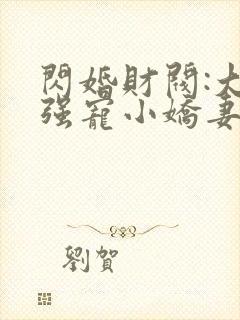 閃婚財閥:大
强寵小嬌妻
劉賀